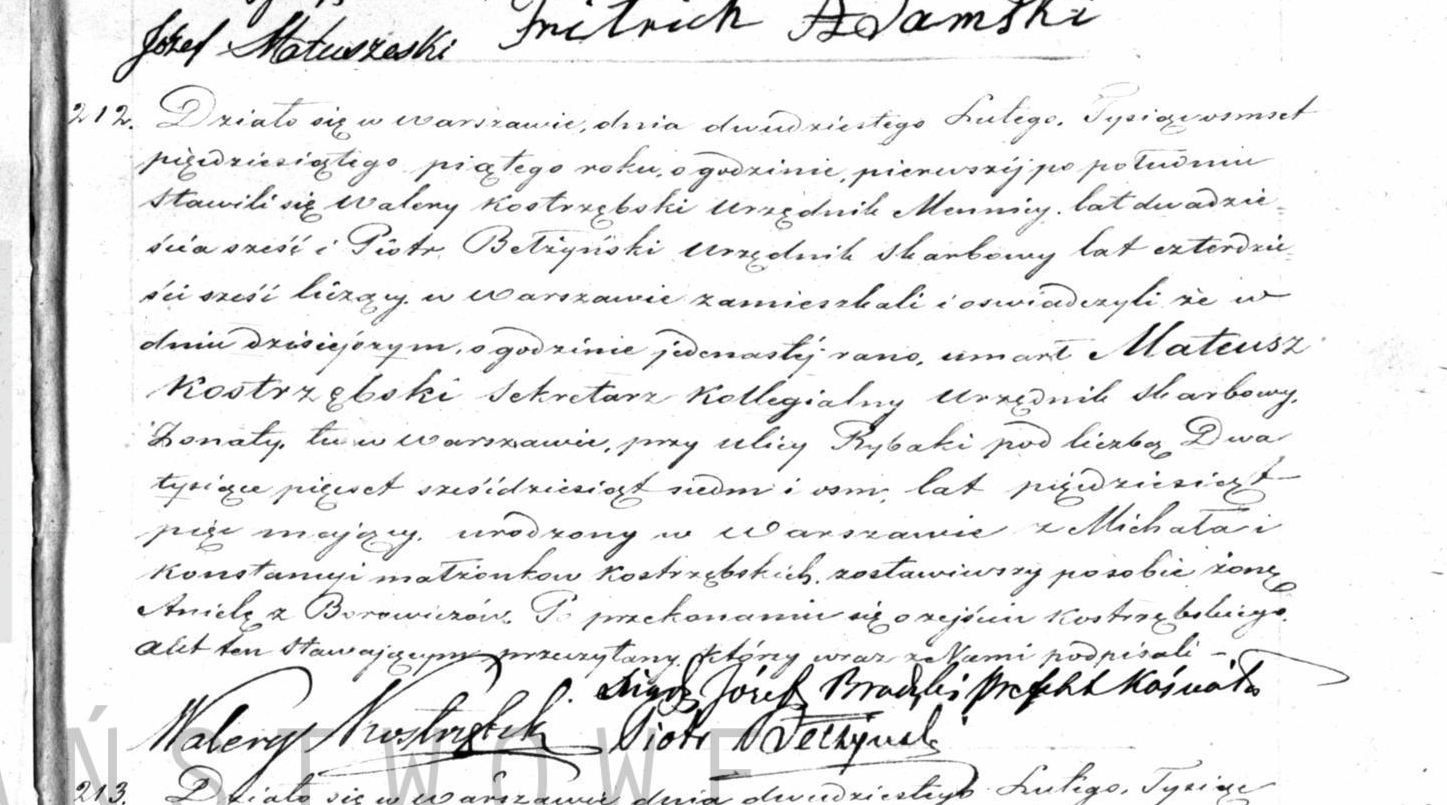 Józef Matuszeski Fritrich Adamski
212. Działo się w Warszawie, dnia dwudziestego Lutego, Tysiąc osmset
pięćdziesiątego piątego roku, o godzinie, pierwszéj po południu
Stawili się Walery Kostrzębski Urzędnik Mennicy, lat dwadzie=
ścia sześć i Piotr Bełżyński Urzędnik Skarbowy lat czterdzie=
ści sześć liczący, w Warszawie zamieszkali i oswiadczyli że w
dniu dzisiejszym, o godzinie jedenastéj rano, umarł Mateusz
Kostrzębski Sekretarz Kollegialny Urzędnik Skarbowy,
Żonaty, tu w Warszawie, przy ulicy Rybaki pod liczbą Dwa
tysiące pięćset sześćdziesiąt siedm i osm, lat pięćdziesiąt
pięć mający, urodzony w Warszawie z Michała i
Konstancyi małżonkow Kostrzębskich, zostawiwszy po sobie żonę
Anielę z Borowiczów. Po przekonaniu się o zejściu Kostrzębskiego,
Akt ten Stawającym przeczytany, którzy wraz z Nami podpisali –
Ksiądz Józef
Walery Kostrzębski Piotr Bełżyński
ŃSTWOWE
213. Działo się w Warszawie dnia dwudziestego Lutego, Tysiąc